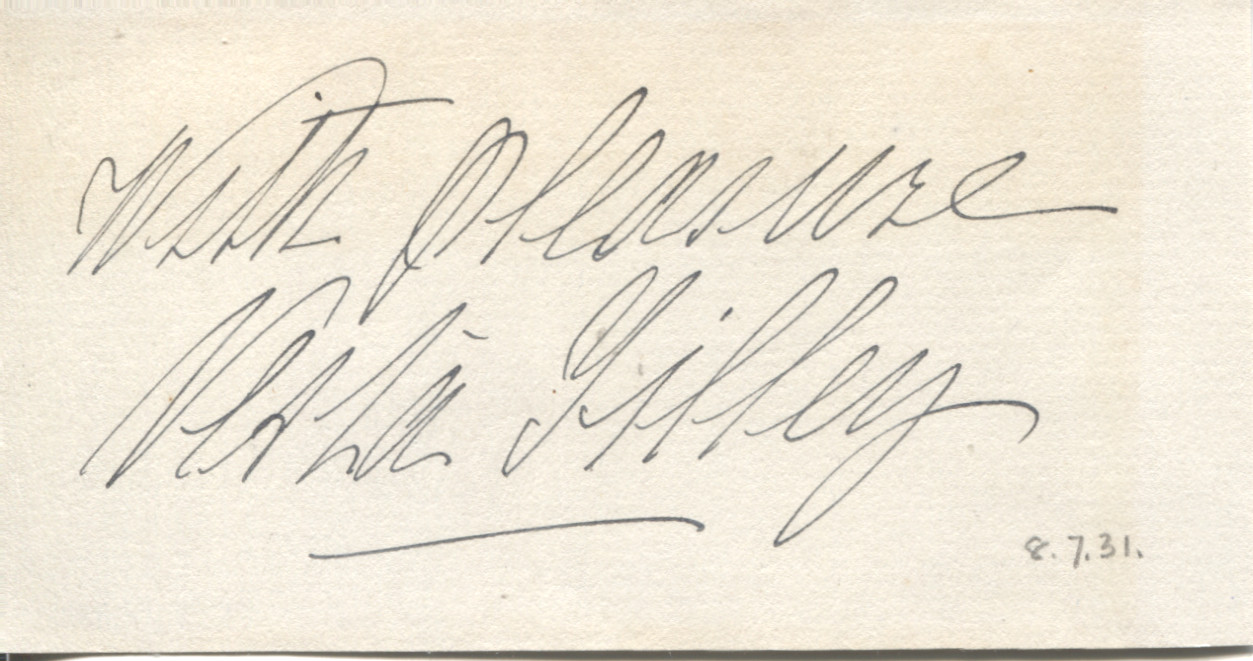 With pleasure
Vesta Tilley
8.7.31.